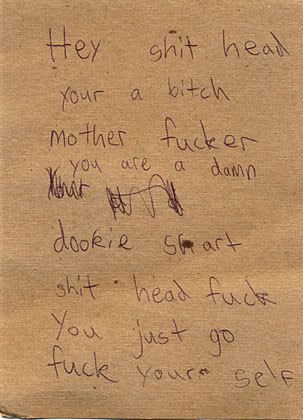 Hey shit head
your a bitch
mother fucker
you are a damn
dookie shart
shit head fuck
You just go
fuck your self